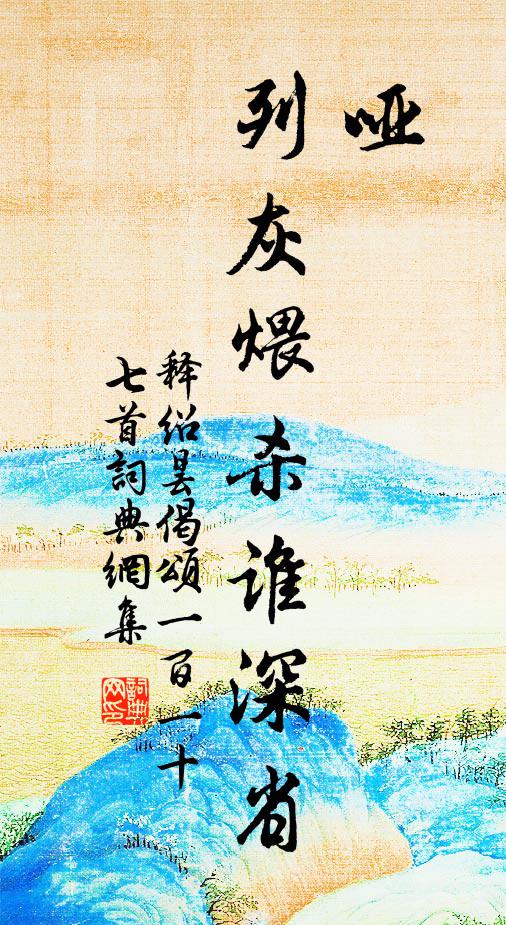 哑
列灰煨杀谁深省
释绍昙偈颂一百一十
七首詞典網集
詞典
网印